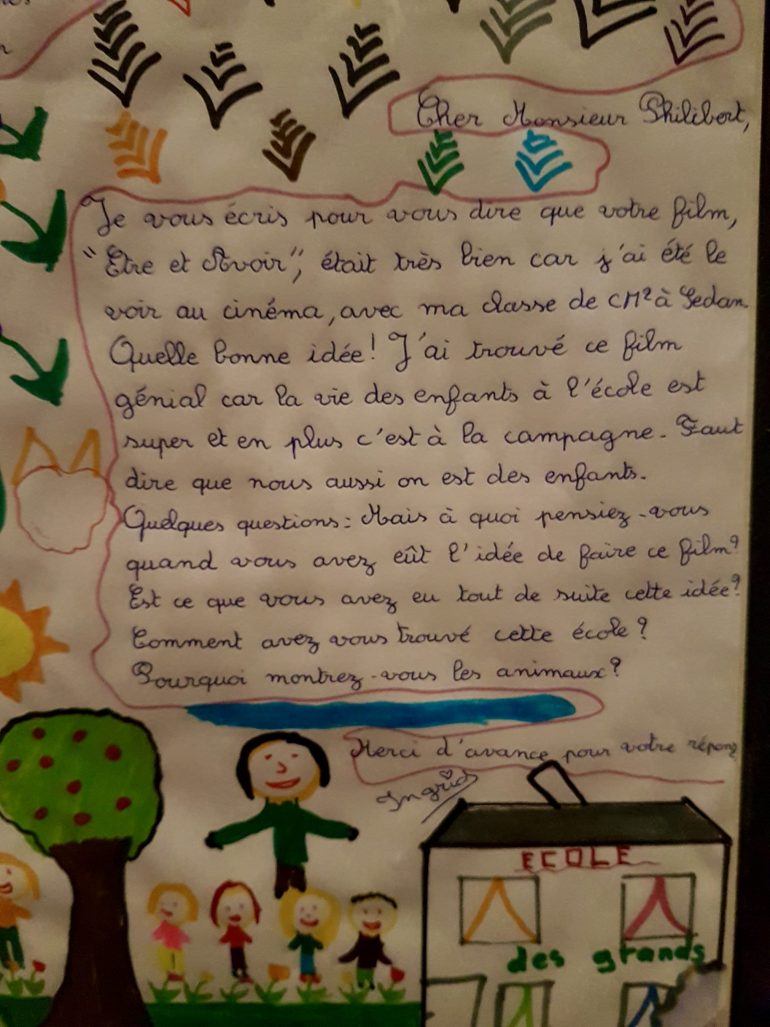 Cher Monsieur Philibert,
Je vous écris pour vous dire que votre film,
"Etre et Avoir", était très bien car j'ai été le
voir au cinéma, avec ma classe de CM2 à Sedan
Quelle bonne idée! J'ai trouvé ce film
génial car la vie des enfants à l'école est
super et en plus c'est à la campagne. Faut
dire que nous aussi on est des enfants.
Quelques questions: Mais à quoi pensiez-vous
quand vous avez eût l'idée de faire ce film?
Est ce que vous avez eu tout de suite cette idée?
Comment avez vous trouvé cette école?
Pourquoi montrez-vous les animaux?
Merci d'avance pour votre répons
Ingrid
ECOLE
des grands